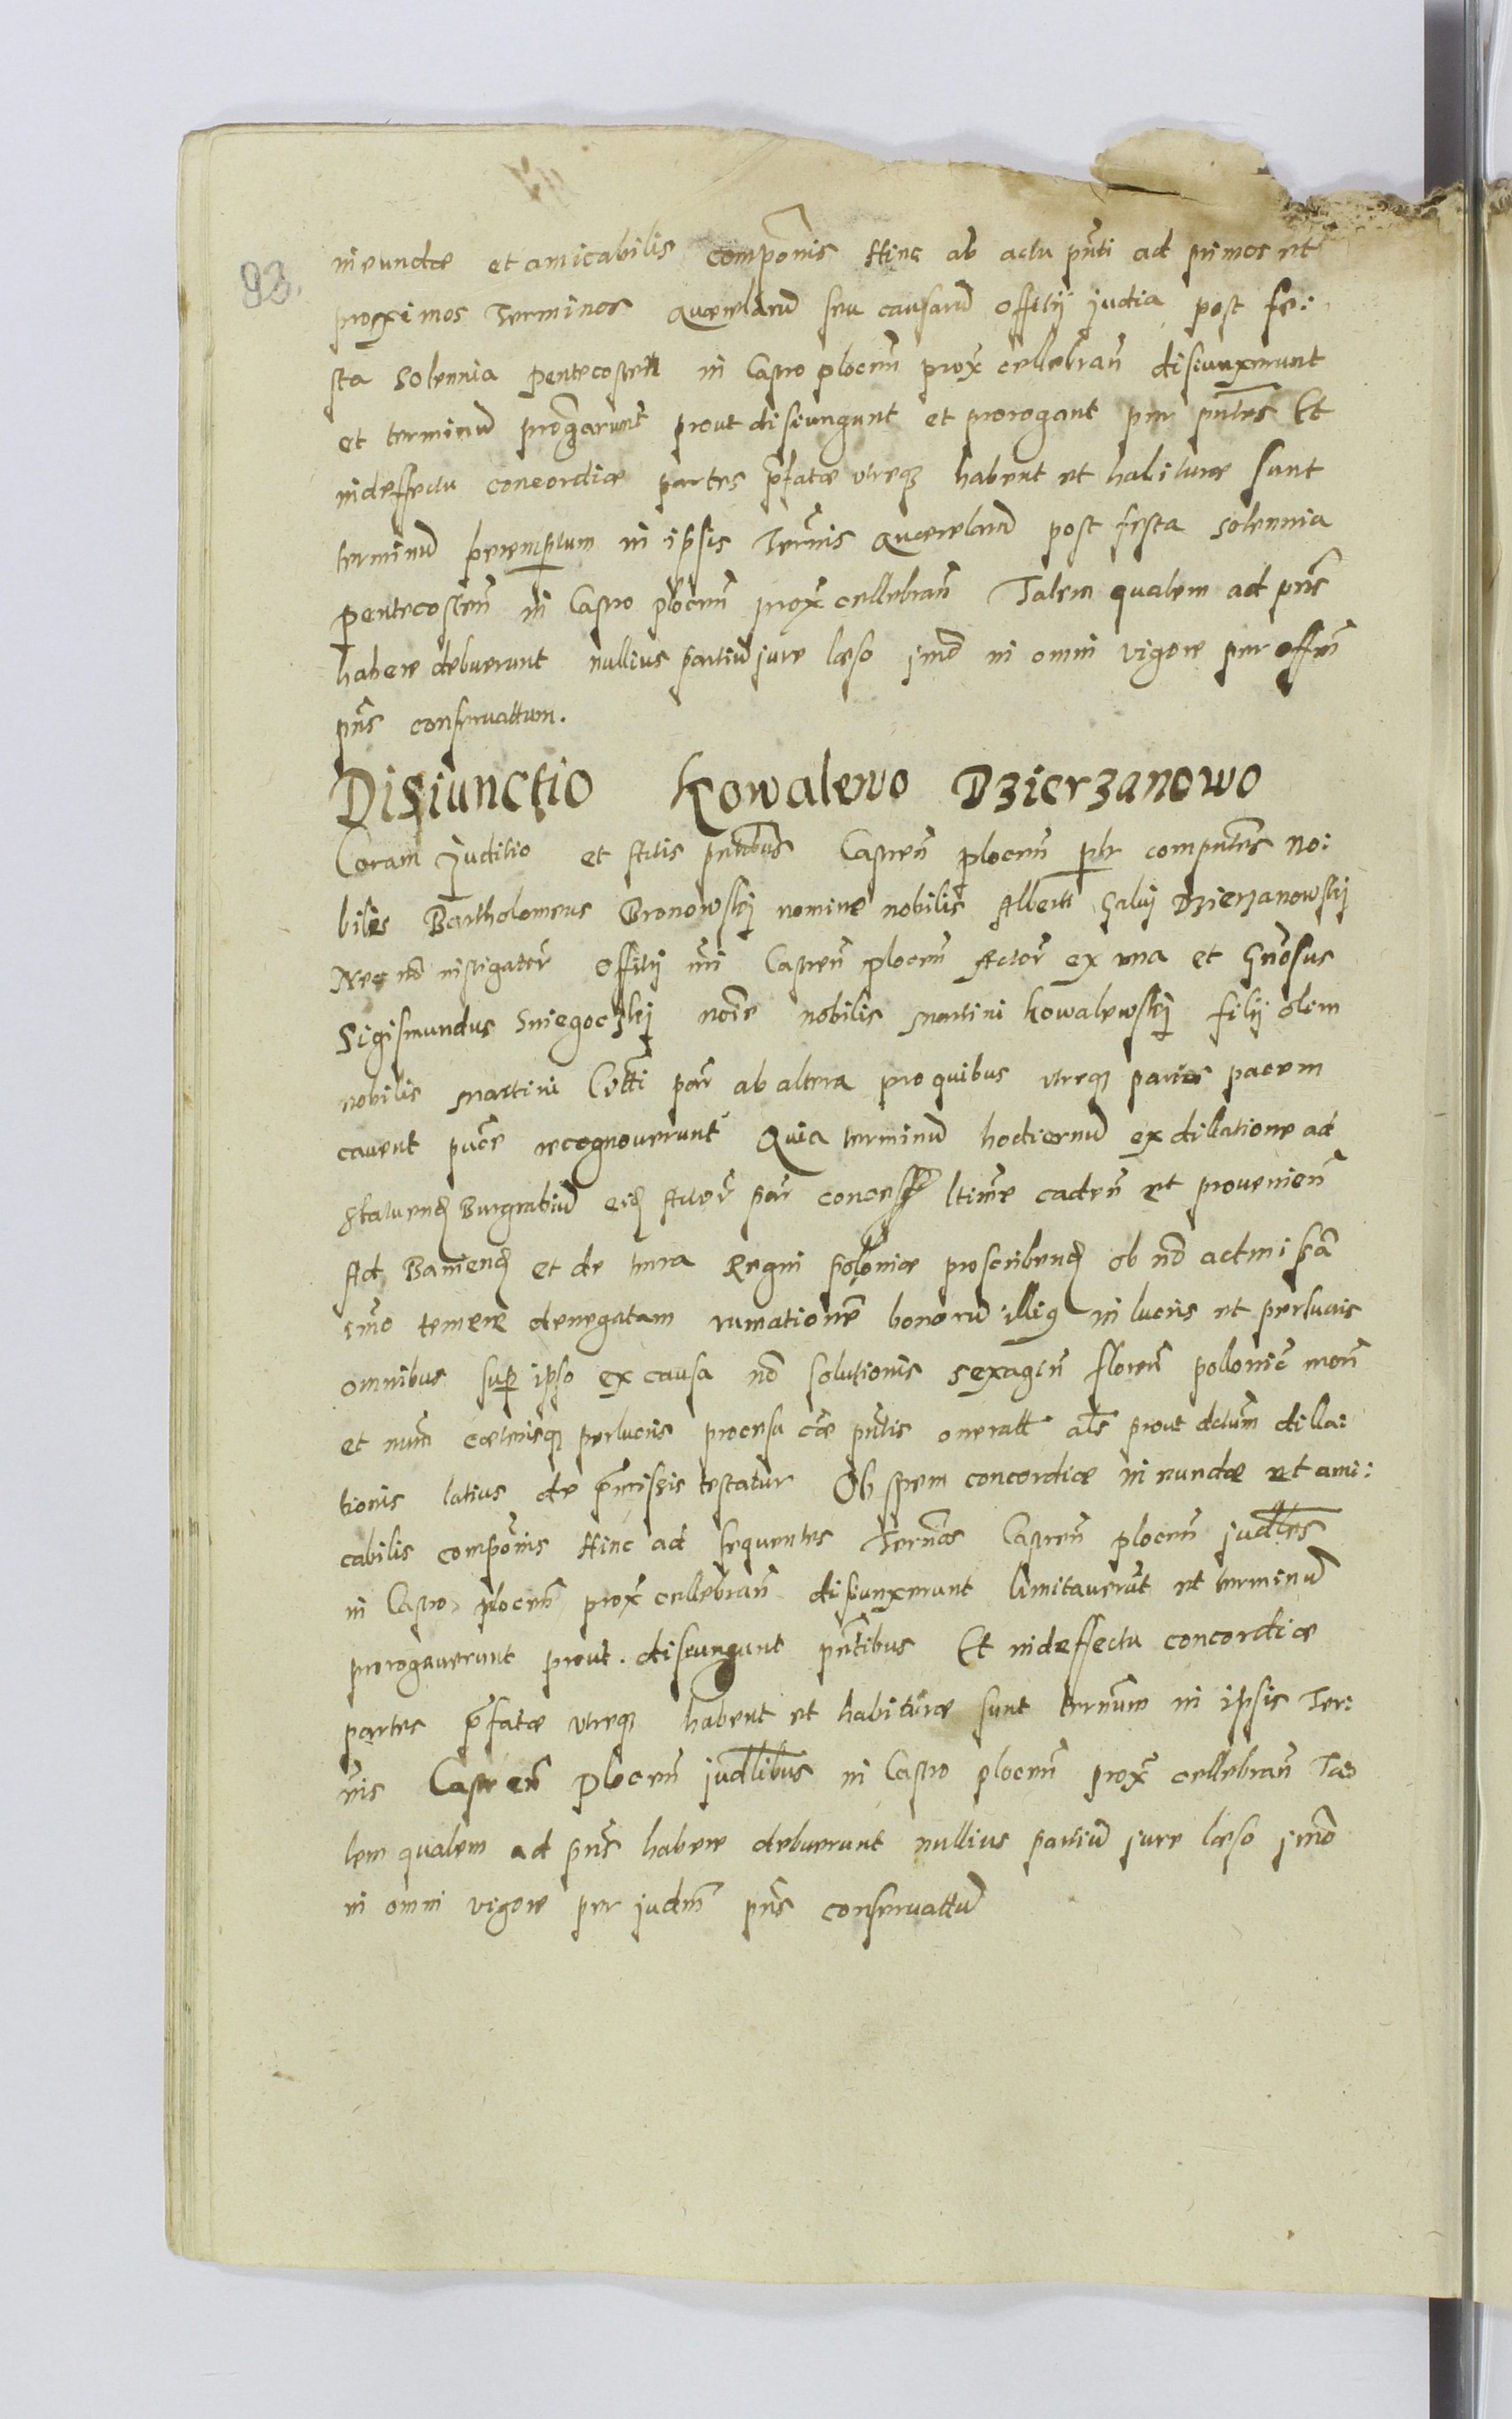 93.
ineundæ et amicabilis comp̃onis Hinc ab actu pñti ad primos et
proximos Terminos Quærelarũ seu causarũ Offitij judia post fe:
sta Solennia pentecosten in Castro plocen̄ prox̃ cellebran̄ disiunxerunt
et terminũ prorogarunt prout disiungunt et prorogant per pñtes Et
indeffectu concordiæ partes p̃fatæ utreq3 habent et habituræ sunt
terminũ peremptum in ipsis Termis Quærelarũ post festa solennia
pentecosten̄ in Castro plocen̄ prox̃ cellebran̄ Talem qualem ad pñs
habere debuerunt nullius partiũ jure læso jmo in omni vigore per offm̃
pñs conservattum.
Disiunctio Kowalewo Dzierzanowo
Coram Juditio et Actis pñtibus Castren̄ plocen̄ pr̃ compñtes No:
biles Bartholomeus Bronowskj nomine nobilis Alberti Galij Dzierzanowskj
Nec nõ instigator̃ Offitij ñri Castren̄ plocen̄ Actor̃ ex una et Gñosus
Sigismundus Sniegockj noĩe nobilis Martini Kowalewskj filij olim
nobilis Martini Cittĩ par̃ ab altera pro quibus utreq3 partes pacem
cavent puc̃e recognoverunt Quia terminũ hodiernũ ex dillatione ad
statuend̃ Burgrabiũ eid̃ Actor̃ par̃ concess̃ ltim̃e caden̄ et provenien̄
Ad Baniend̃ et de terra Regni Poloniæ proscribend̃ ob nõ admissã
imo temere denegatam rumationẽ bonorũ illig in lucris et perlucris
omnibus sup̃ ipso ex causa nõ solutionis sexagin̄ floren̄ pollonic̃ mon̄
et num̃ cæterisq3 perlucris processũ cãe pñtis oneratt al̃s prout actum dilla:
tionis latius de p̃missis testatur Ob spem concordiæ ineundæ et ami:
cabilis comp̃onis Hinc ad sequentes Termõs Castren̄ plocen̄ judl̃es
in Castro plocen̄ prox̃ cellebran̄ disiunxerunt limitaverũt et terminũ
prorogaverunt prout disiungunt pñtibus Et indeffectu concordiæ
partes p̃fatæ utreq3 habent et habituræ sunt termum in ipsis Ter:
mis Castren̄ Plocen̄ judl̃ibus in Castro plocen̄ prox̃ cellebran̄ Ta:
lem qualem ad pñs habere debuerunt nullius partiũ jure læso jmo
in omni vigore per judm̃ pñs conservattũ